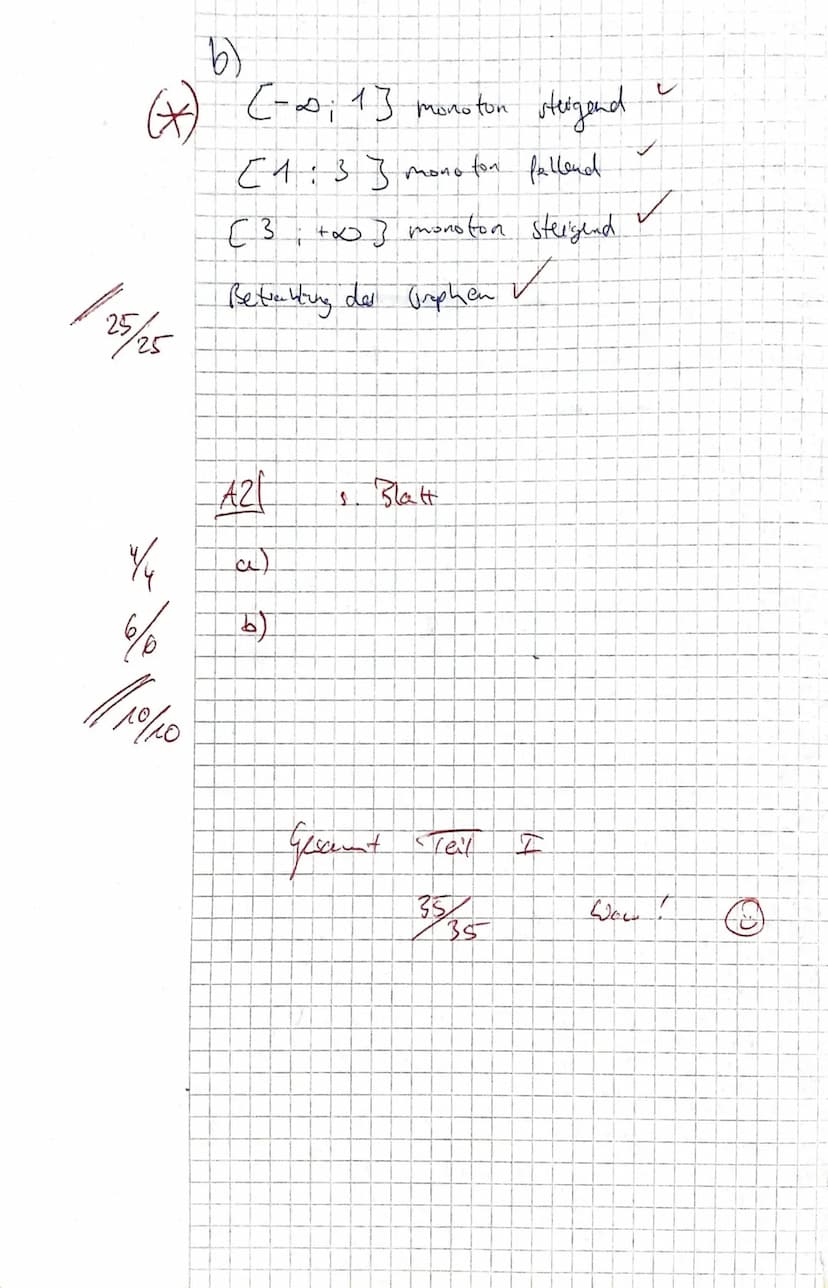 b)
(*) [-∞; 1] monoton steigend ✓
[1 : 3] monoton fallend ✓
[3 ; +∞] monoton steigend ✓
Betrachtung des Graphen ✓
25/25
A2 s. Blatt
4/4 a)
6/6 b)
10/10
Gesamt Teil I
35/35 Wow! ☺